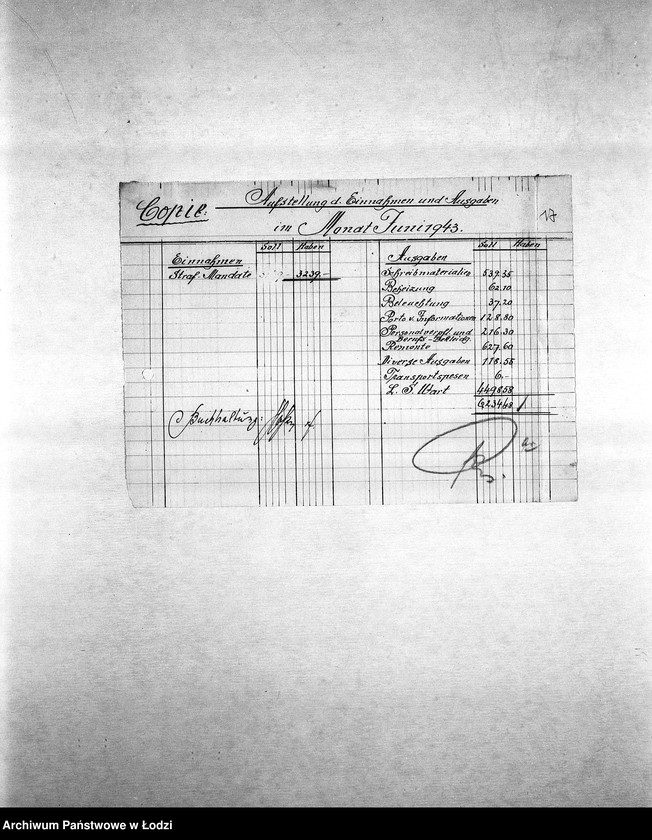 Copie.
Aufstellung d. Einnahmen und Ausgaben
im Monat Juni 1943.
17
Soll Haben
Einnahmen
Straf Mandate 3239.-
Soll Haben
Ausgaben
Schreibmaterialien 539.35
Beheizung 62.10
Beleuchtung 37.20
Porto u. Informationen 128.80
Personalverpfl. und 216.30
Berufs-Bekleidg.
Remonte 627.60
Diverse Ausgaben 118.55
Transportspesen 6.-
4498.58
6234.48
Buchhaltung:
Archiwum Państwowe w Łodzi